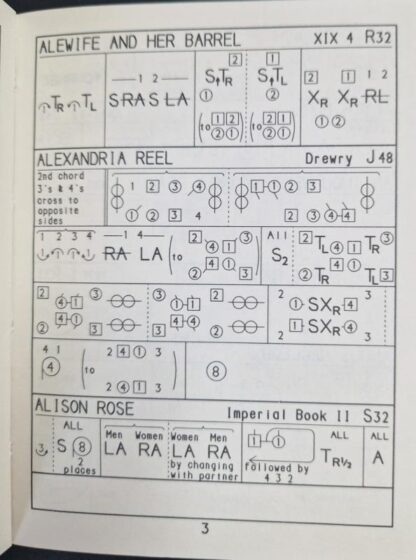 ALEWIFE AND HER BARREL XIX 4 R32
1 2
2 1
TR TL S RA S LA S TR S TL 2 1 1 2
1 2 XR XR RL
(to 1 2 2 1) (to 2 1 2 1) 1 2
ALEXANDRIA REEL Drewry J48
2nd chord
3's & 4's
cross to
opposite
sides
1 2 3 4 1 1 2 3
1 2 3 4 2 3 4 4
1 2 3 4 1 4 All
1 1 1 1 RA LA (to 2 4 1 3 S2 2 TL 4 1 TR 3
2 4 1 3) 2 TR 4 1 TL 3
2 4 1 3 3 1 1 2 2 1 SXR 4 3
2 4 1 3 2 4 4 3 2 1 SXR 4 3
4 1 2 4 1 3
4 (to 8
2 4 1 3)
ALISON ROSE Imperial Book II S32
ALL Men Women Women Men ALL ALL
3 S 8 LA RA LA RA 1 1 TR½ A
2
places
by changing
with partner
followed by
4 3 2
3